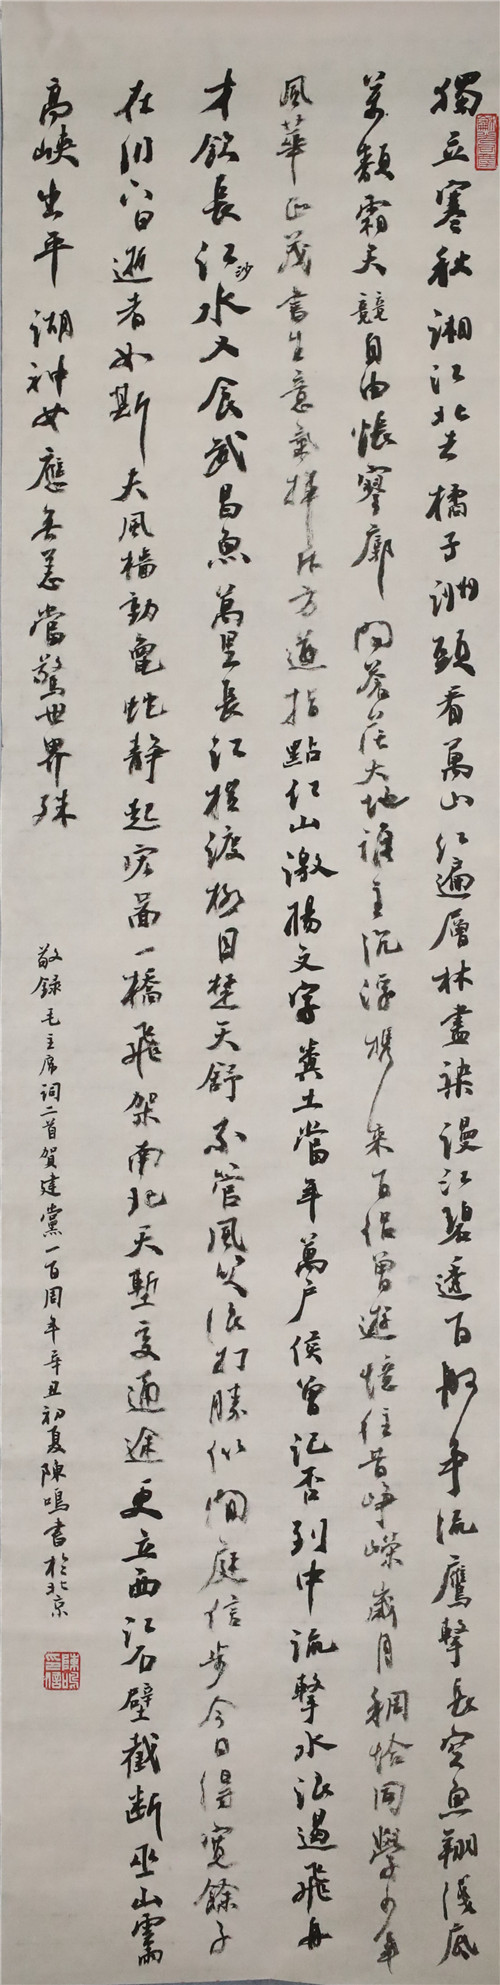 獨立寒秋湘江北去橘子洲頭看萬山紅遍層林盡染漫江碧透百舸爭流鷹擊長空魚翔淺底
萬類霜天競自由悵寥廓問蒼茫大地誰主沉浮攜來百侶曾遊憶往昔崢嶸歲月稠恰同學少年
風華正茂書生意氣揮斥方遒指點江山激揚文字糞土當年萬戶侯曾記否到中流擊水浪遏飛舟
才飲長江沙水又食武昌魚萬里長江橫渡極目楚天舒不管風吹浪打勝似閒庭信步今日得寬餘子
在川上曰逝者如斯夫風檣動龜蛇靜起宏圖一橋飛架南北天塹變通途更立西江石壁截斷巫山雲雨
高峽出平湖神女應無恙當驚世界殊
敬錄毛主席詞二首賀建黨一百周年辛丑初夏陳鳴書於北京